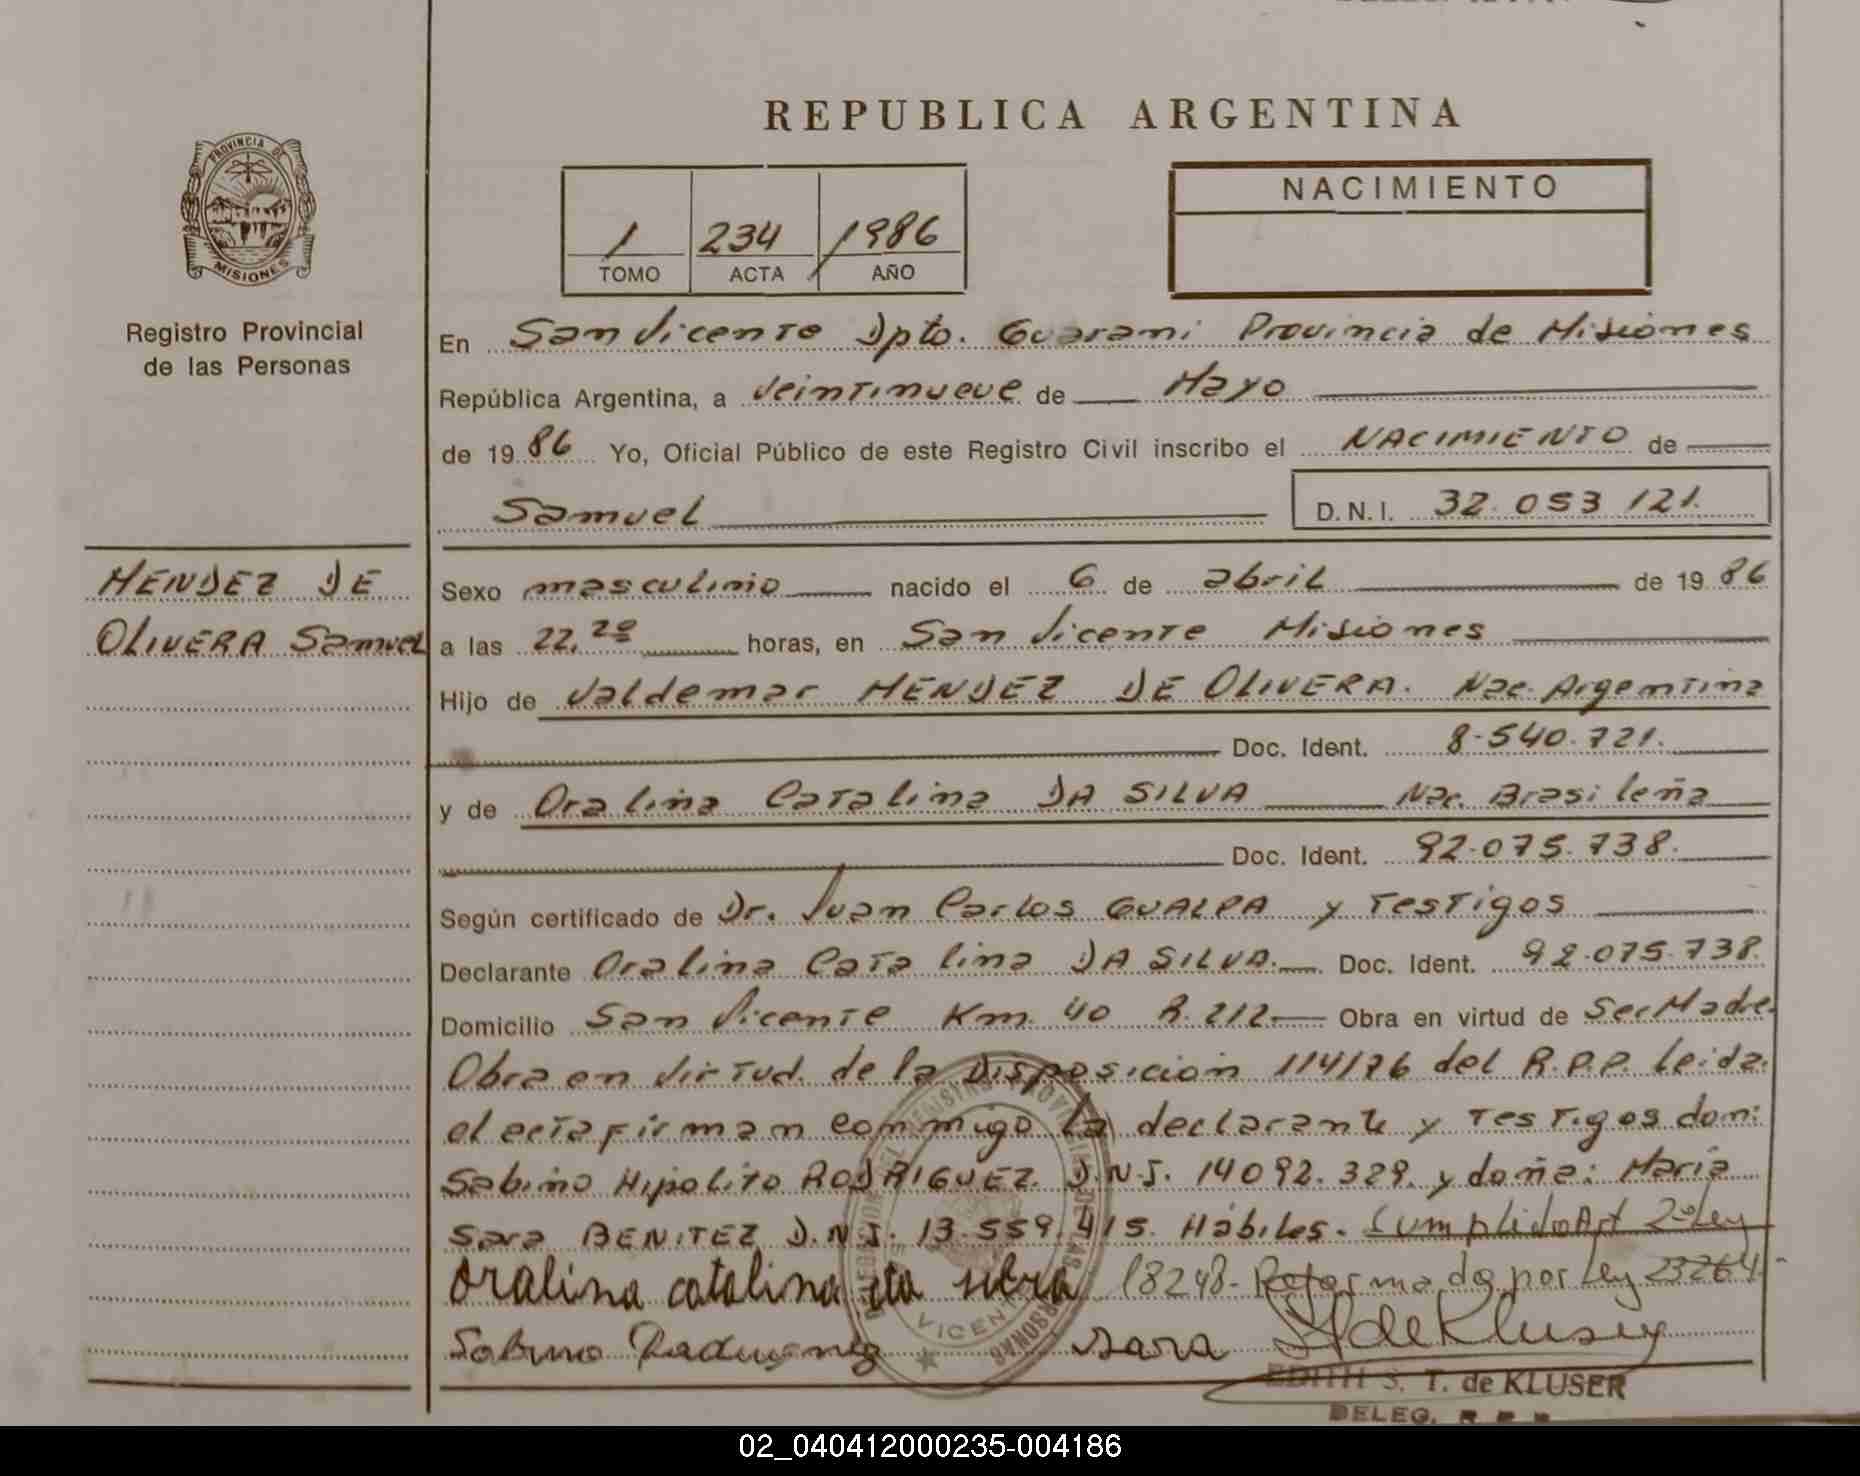 REPUBLICA ARGENTINA
PROVINCIA DE
MISIONES
Registro Provincial
de las Personas
1 234 1986
TOMO ACTA AÑO
NACIMIENTO
En San Vicente Dpto. Guarani Provincia de Misiones
República Argentina, a veintinueve de Mayo
de 19 86 Yo, Oficial Público de este Registro Civil inscribo el NACIMIENTO de
Samuel D.N.I. 32.053 121.
MENDEZ DE
OLIVERA Samuel
Sexo masculino nacido el 6 de abril de 19 86
a las 22,20 horas, en San Vicente Misiones
Hijo de Valdemar MENDEZ DE OLIVERA. Nac. Argentina
Doc. Ident. 8.540.721.
y de Oralina Catalina DA SILVA Nac. Brasileña
Doc. Ident. 92.075.738.
Según certificado de Dr. Juan Carlos GUALPA y Testigos
Declarante Oralina Catalina DA SILVA. Doc. Ident. 92.075.738.
Domicilio San Vicente Km 40 R.212 Obra en virtud de Ser Madre.
Obra en virtud. de la Disposicion 114/76 del R.P.P. Leida.
el acta firman conmigo la declarante y Testigos don:
Sabino Hipolito RODRIGUEZ. D.N.I. 14092.329. y doña: Maria
Sara BENITEZ D.N.I. 13.559.415. Hábiles. Cumplido Art 2º Ley
18248- Reformada por Ley 23264-
oralina catalina da silva
Sabino Sara
VICENTE
EDITH S. T. de KLUSER
DELEG. R.P.P.
02_040412000235-004186